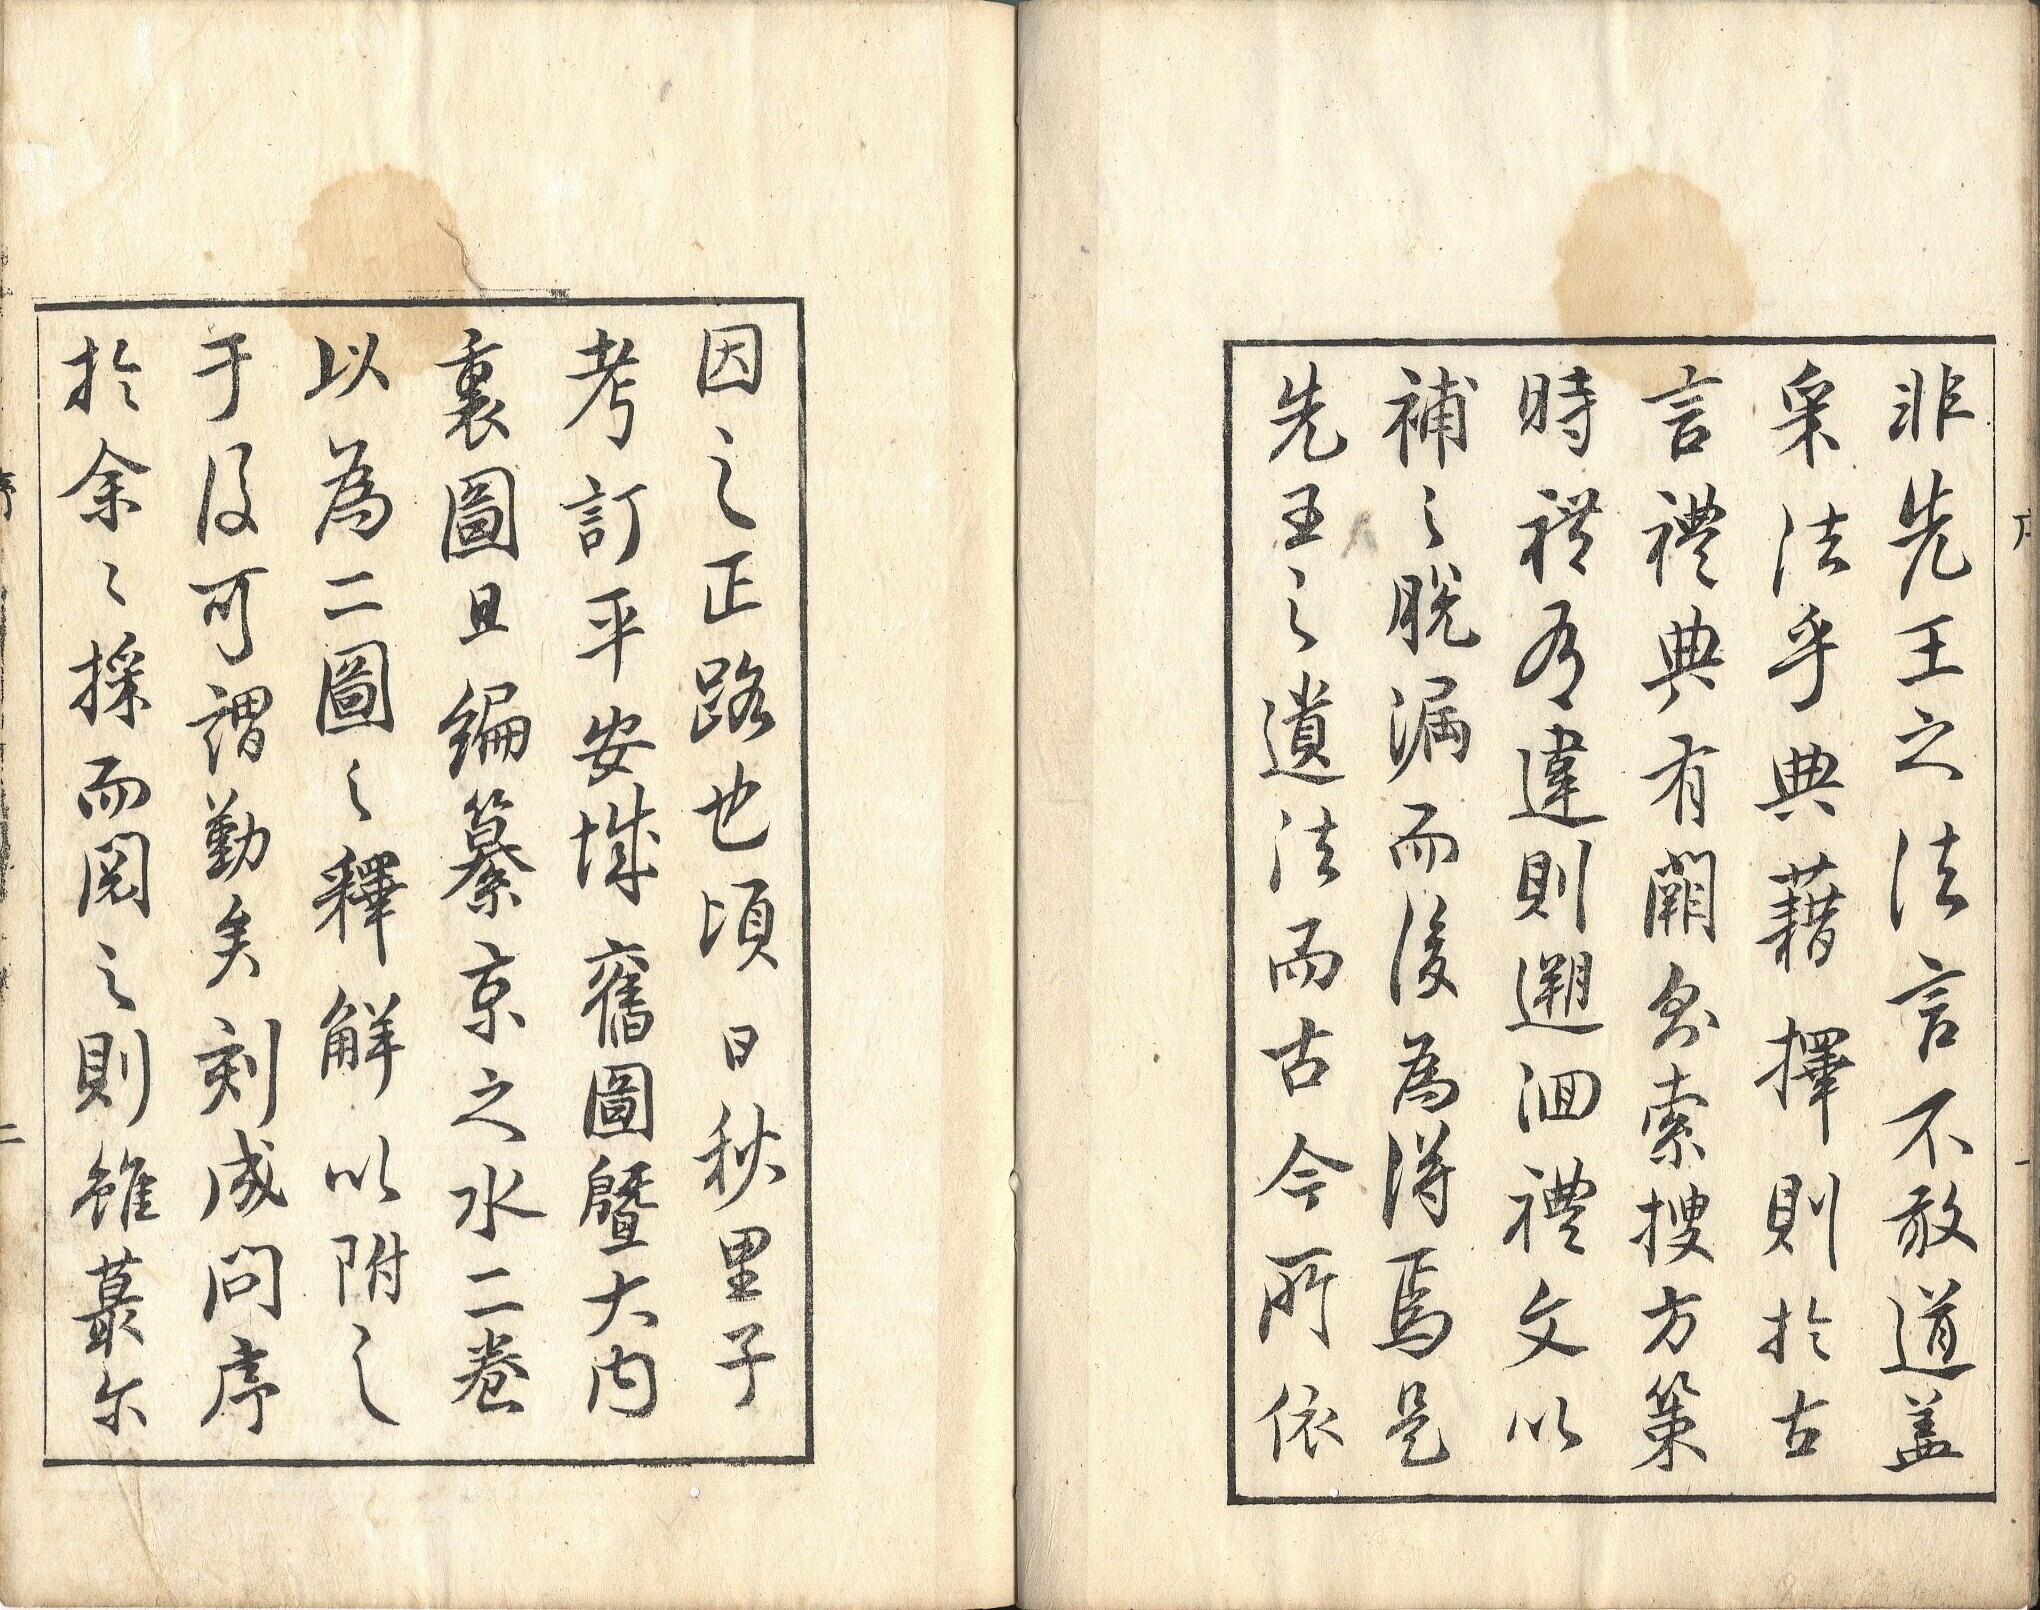 非先王之法言不敢道蓋
采法乎典藉擇則於古
言禮典有闕忽索搜方策
時禮有違則遡洄禮文以
補之脱漏而後為得焉是
先王之遺法而古今所依
因之正路也頃日秋里子
考訂平安城舊圖曁大内
裏圖且編纂京之水二卷
以為二圖之釋解以附之
于後可謂勤矣刻成問序
於余々採而閲之則雖蕞尓
序
一
序
二